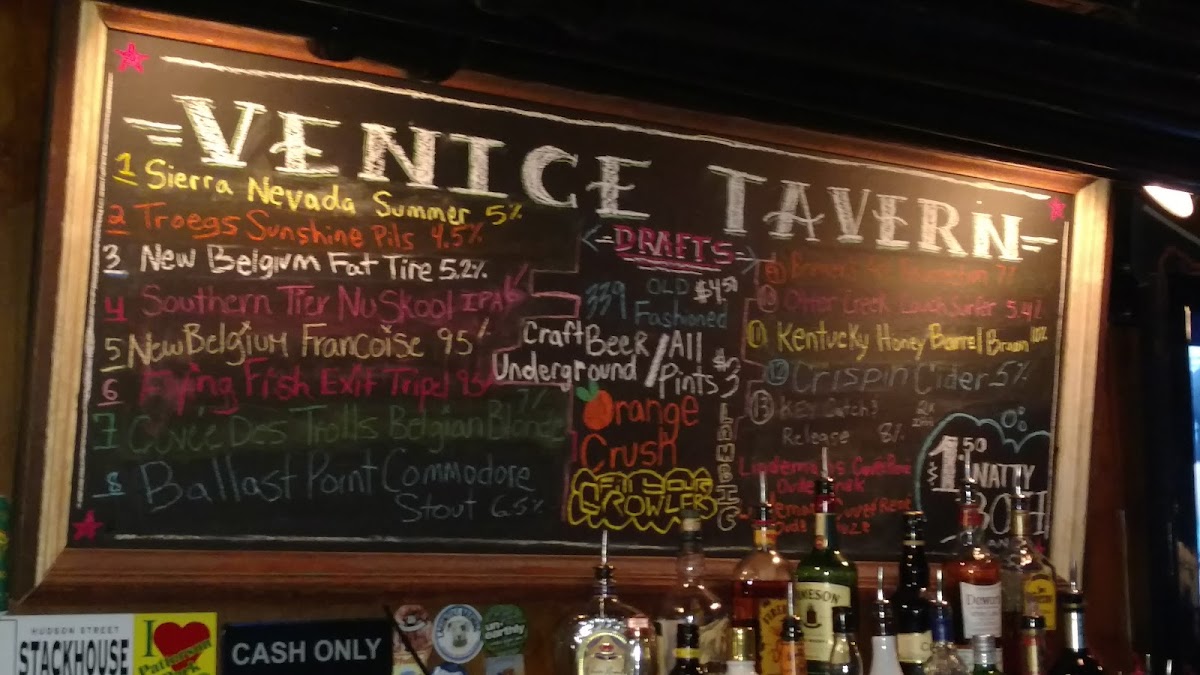 VENICE TAVERN
1 Sierra Nevada Summer 5%
2 Troegs Sunshine Pils 4.5%
3 New Belgium Fat Tire 5.2%
4 Southern Tier NuSkool IPA 6%
5 New Belgium Francoise 95%
6 Flying Fish Exit Tripel
7 Cuvée Des Trolls Belgian Blonde 7%
8 Ballast Point Commodore
Stout 6.5%
DRAFTS
OLD $4.50
339 Fashioned
Craft Beer / All
Underground / Pints
$3
Orange
Crush
GROWLERS
LAMBIC
7%
Otter Creek Couch Surfer 5.4%
11 Kentucky Honey Barrel Brown 10%
12 Crispin Cider 5%
13 Key Catch 3
Release 8%
Lindemans Cuvée René
Oude
Cuvée René
Oude
$1.50
NATTY
BOH
HUDSON STREET
STACKHOUSE
I
Patterson
Park
CASH ONLY
JAMESON